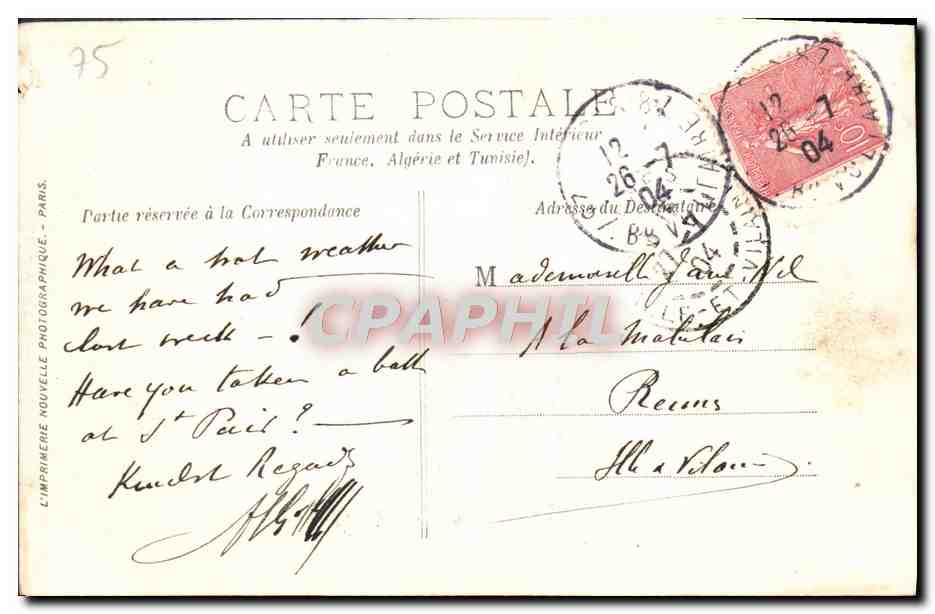 75
CARTE POSTALE
A utiliser seulement dans le Service Intérieur
France, Algérie et Tunisie).
Partie réservée à la Correspondance
Adresse du Destinataire
What a hot weather
we have had
last week - !
Have you taken a bath
at St Pair?
Kindest Regards
Mademoiselle Jane
A la
Rennes
Ille & Vilaine
L'IMPRIMERIE NOUVELLE PHOTOGRAPHIQUE. - PARIS.
12
26 - 7
04
12
26 - 7
04
10
ILLE-ET-VILAINE
CPAPHIL